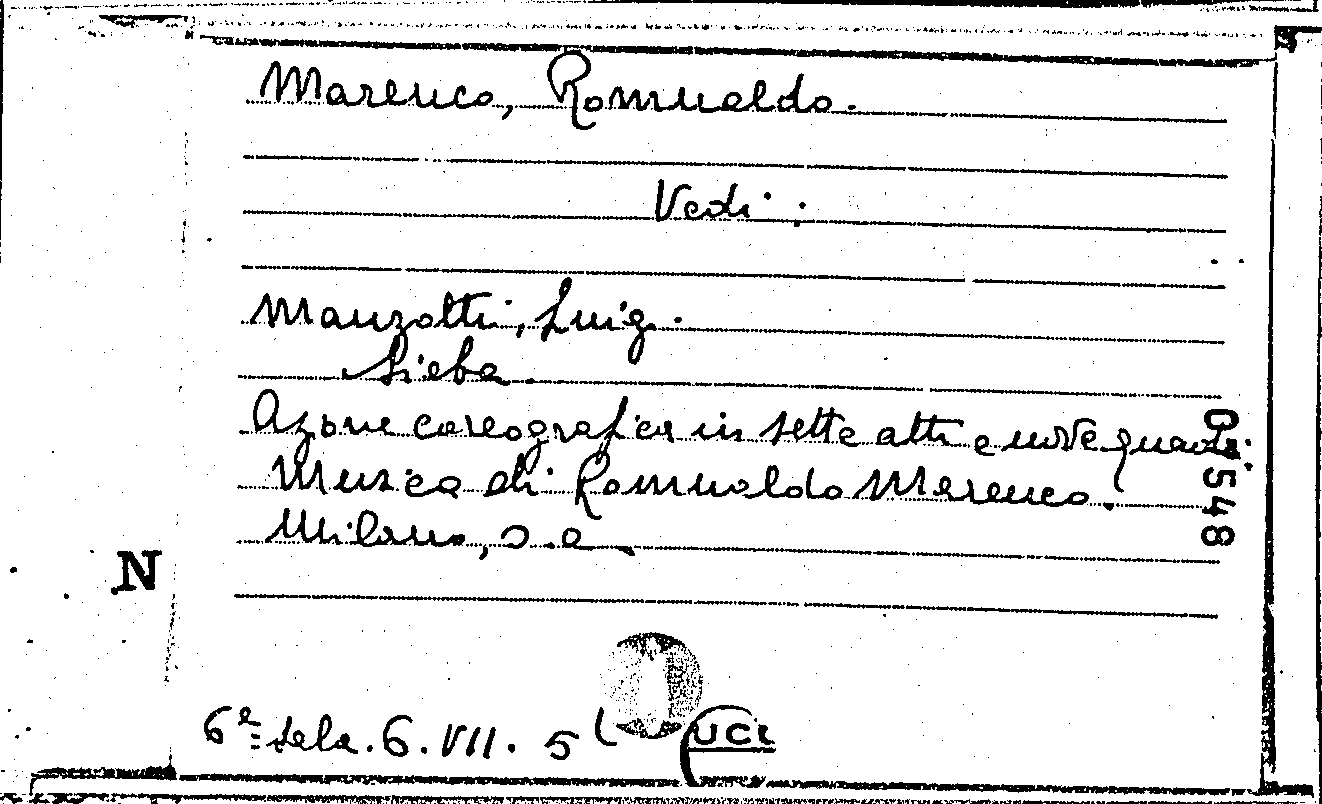 Marenco, Romualdo.
Vedi:
Manzotti, Luigi.
Sieba.
Azione coreografica in sette atti e nove quadri
Musica di Romualdo Marenco.
Milano, s.a.
N
6ª sala. 6. VII. 5
UCL
5548